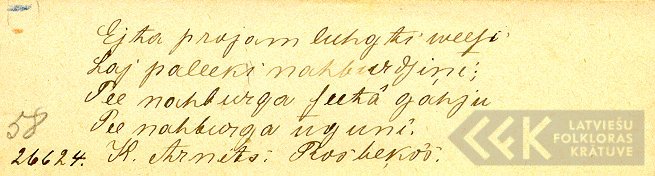 Ejta projam luhgti weesi
Laj paleeki nahburdsini;
Pee nahburga seetâ gahju
58 Pee nahburga uguni.
26624. K. Arnits: Rosbekôs.
LATVIEŠU
FOLKLORAS
KRĀTUVE